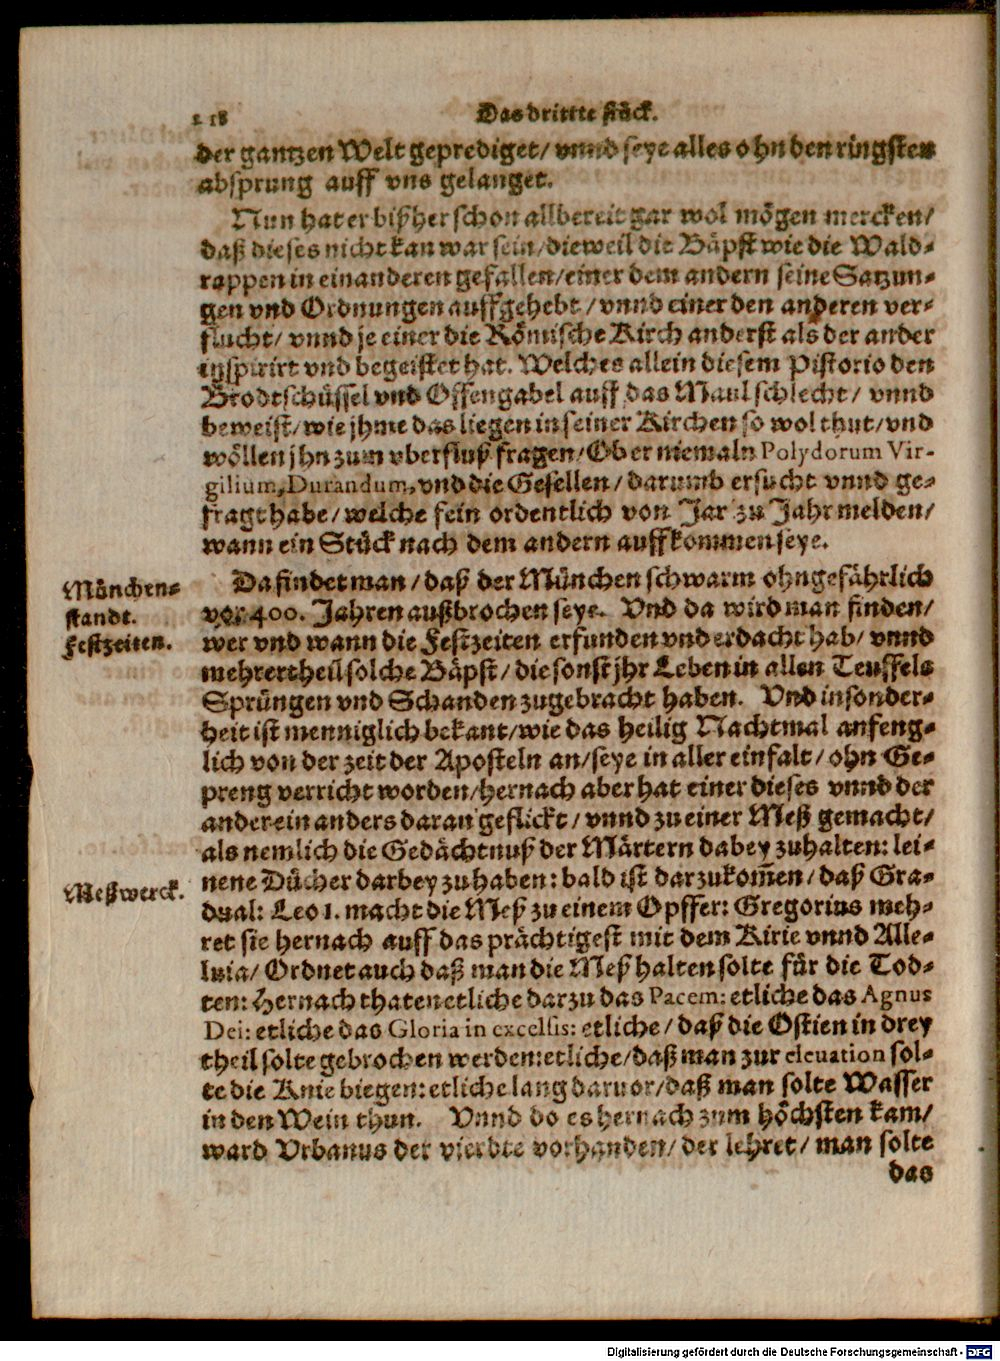 218
Das drittte stück.
der gantzen Welt geprediget/ vnnd seye alles ohn den ringsten
absprung auff vns gelanget.
Nun hat er bißher schon allbereit gar wol mögen mercken/
daß dieses nicht kan war sein/ dieweil die Bäpst wie die Wald-
rappen in einanderen gefallen/ einer dem andern seine Satzun-
gen vnd Ordnungen auffgehebt/ vnnd einer den anderen ver-
flucht/ vnnd je einer die Römische Kirch anderst als der ander
inspirirt vnd begeistet hat. Welches allein diesem Pistorio den
Brodtschüssel vnd Offengabel auff das Maul schlecht/ vnnd
beweist/ wie jhme das liegen in seiner Kirchen so wol thut/ vnd
wöllen jhn zum vberfluß fragen/ Ob er niemaln Polydorum Vir-
gilium, Durandum, vnd die Gesellen/ darumb ersucht vnnd ge-
fragt habe/ welche fein ordentlich von Jar zu Jahr melden/
wann ein Stück nach dem andern auffkommen seye.
München-
standt.
Festzeiten.
Da findet man/ daß der München schwarm ohngefährlich
vor 400. Jahren außbrochen seye. Vnd da wird man finden/
wer vnd wann die Festzeiten erfunden vnd erdacht hab/ vnnd
mehrertheil solche Bäpst/ die sonst jhr Leben in allen Teuffels
Sprüngen vnd Schanden zugebracht haben. Vnd insonder-
heit ist menniglich bekant/ wie das heilig Nachtmal anfeng-
lich von der zeit der Aposteln an/ seye in aller einfalt/ ohn Ge-
preng verricht worden/ hernach aber hat einer dieses vnnd der
ander ein anders daran geflickt/ vnnd zu einer Meß gemacht/
als nemlich die Gedächtnuß der Märtern dabey zuhalten: lei-
Meßwerck.
nene Dücher darbey zu haben: bald ist darzukom̃en/ daß Gra-
dual: Leo 1. macht die Meß zu einem Opffer: Gregorius meh-
ret sie hernach auff das prächtigest mit dem Kirie vnnd Alle-
luia/ Ordnet auch daß man die Meß halten solte für die Tod-
ten: Hernach thaten etliche darzu das Pacem: etliche das Agnus
Dei: etliche das Gloria in excelsis: etliche/ daß die Ostien in drey
theil solte gebrochen werden: etliche/ daß man zur eleuation sol-
te die Knie biegen: etliche lang daruor/ daß man solte Wasser
in den Wein thun. Vnnd do es hernach zum höchsten kam/
ward Vrbanus der vierdte vorhanden/ der lehret/ man solte
das
Digitalisierung gefördert durch die Deutsche Forschungsgemeinschaft - DFG